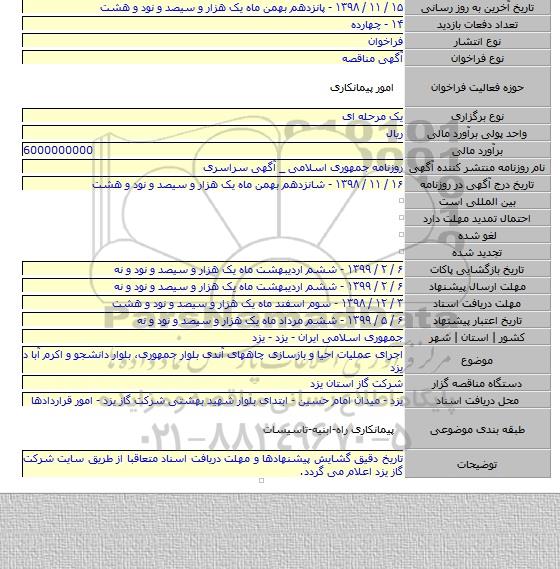 تاریخ آخرین به روز رسانی ۱۵ / ۱۱ / ۱۳۹۸ - پانزدهم بهمن ماه یک هزار و سیصد و نود و هشت
تعداد دفعات بازدید ۱۴ - چهارده
نوع انتشار فراخوان
نوع فراخوان آگهی مناقصه
حوزه فعالیت فراخوان امور پیمانکاری
نوع برگزاری یک مرحله ای
واحد پولی برآورد مالی ریال
برآورد مالی 6000000000
نام روزنامه منتشر کننده آگهی روزنامه جمهوری اسلامی _ آگهی سراسری
تاریخ درج آگهی در روزنامه ۱۶ / ۱۱ / ۱۳۹۸ - شانزدهم بهمن ماه یک هزار و سیصد و نود و هشت
بین المللی است
احتمال تمدید مهلت دارد
لغو شده
تجدید شده
تاریخ بازگشایی پاکات ۶ / ۲ / ۱۳۹۹ - ششم اردیبهشت ماه یک هزار و سیصد و نود و نه
مهلت ارسال پیشنهاد ۶ / ۲ / ۱۳۹۹ - ششم اردیبهشت ماه یک هزار و سیصد و نود و نه
مهلت دریافت اسناد ۳ / ۱۲ / ۱۳۹۸ - سوم اسفند ماه یک هزار و سیصد و نود و هشت
تاریخ اعتبار پیشنهاد ۶ / ۵ / ۱۳۹۹ - ششم مرداد ماه یک هزار و سیصد و نود و نه
کشور | استان | شهر جمهوری اسلامی ایران - یزد - یزد
موضوع اجرای عملیات احیا و بازسازی چاههای آندی بلوار جمهوری، بلوار دانشجو و اکرم آبا د
یزد
دستگاه مناقصه گزار شرکت گاز استان یزد
محل دریافت اسناد یزد - میدان امام حسین - ابتدای بلوار شهید بهشتی شرکت گاز یزد - امور قراردادها
طبقه بندی موضوعی پیمانکاری راه-ابنیه-تاسیسات
توضیحات تاریخ دقیق گشایش پیشنهادها و مهلت دریافت اسناد متعاقبا از طریق سایت شرکت
گاز یزد اعلام می گردد.
ParsNamadData
۰۲۱-۸۸۳۴۹۶۷۰-۵